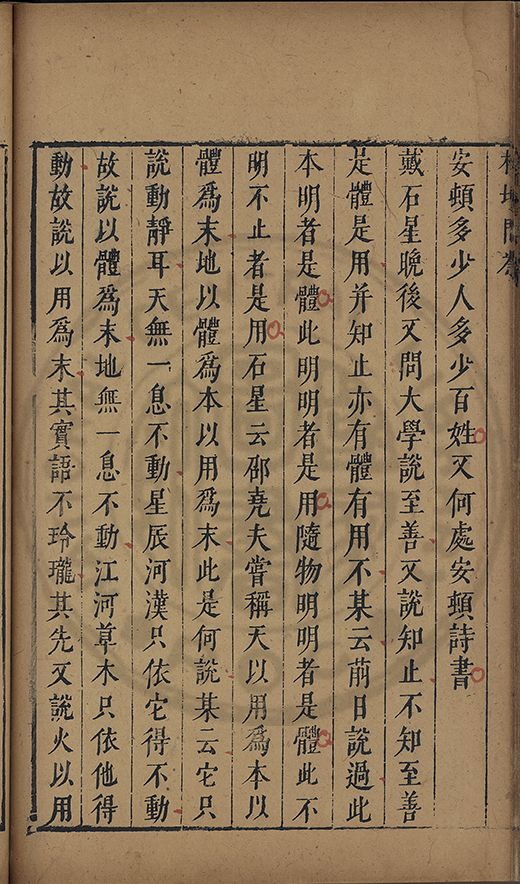 安頓多少人多少百姓又何處安頓詩書
戴石星晚後又問大學說至善又說知止不知至善
是體是用并知止亦有體有用不某云前日說過此
本明者是體此明明者是用隨物明明者是體此不
明不止者是用石星云邵堯夫嘗稱天以用為本以
體為末地以體為本以用為末此是何說某云它只
說動靜耳天無一息不動星辰河漢只依它得不動
故說以體為末地無一息不動江河草木只依他得
動故說以用為末其實語不玲瓏其先又說火以用